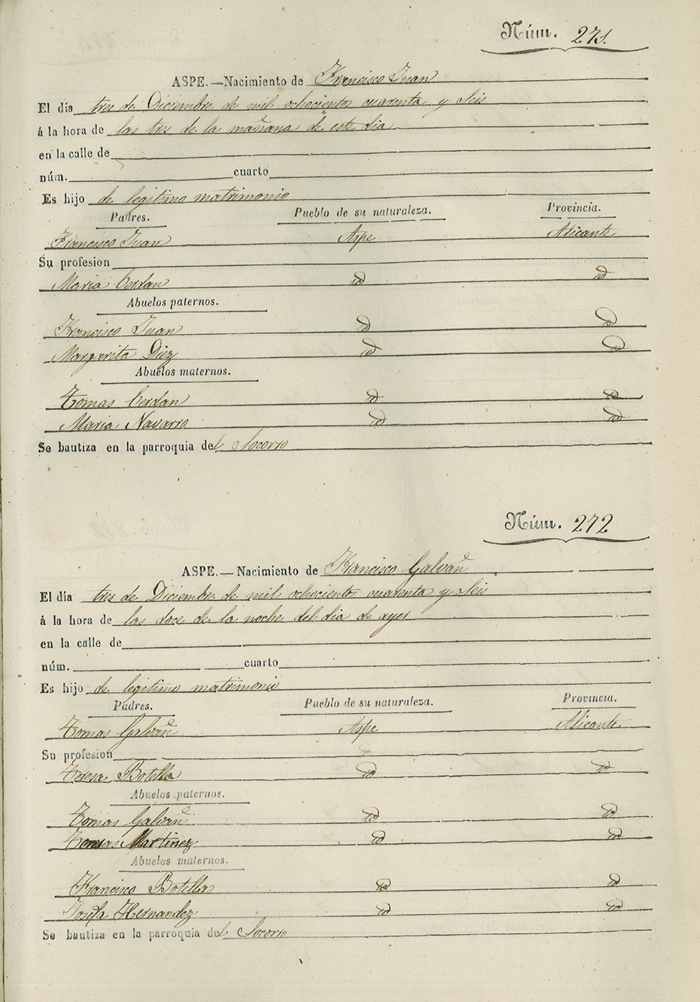 Núm. 271.
ASPE.—Nacimiento de Francisco Juan
El dia tres de Diciembre de mil ochocientos cuarenta y seis
á la hora de las tres de la mañana de este dia.
en la calle de
núm. cuarto
Es hijo de legitimo matrimonio
Padres. Pueblo de su naturaleza. Provincia.
Francisco Juan Aspe Alicante
Su profesion
Maria Cerdan id id
Abuelos paternos.
Francisco Juan id id
Margarita Diez id id
Abuelos maternos.
Tomas Cerdan id id
Maria Navarro id id
Se bautiza en la parroquia del Socorro
Núm. 272
ASPE.—Nacimiento de Francisco Galvañ
El día tres de Diciembre de mil ochocientos cuarenta y seis
á la hora de las doce de la noche del dia de ayer
en la calle de
núm. cuarto
Es hijo de legitimo matrimonio
Padres. Pueblo de su naturaleza. Provincia.
Tomas Galvañ Aspe Alicante
Su profesion
Teresa Botella id id
Abuelos paternos.
Tomas Galvañ id id
Martinez id id
Abuelos maternos.
Francisco Botella id id
Josefa Hernandez id id
Se bautiza en la parroquia del Socorro